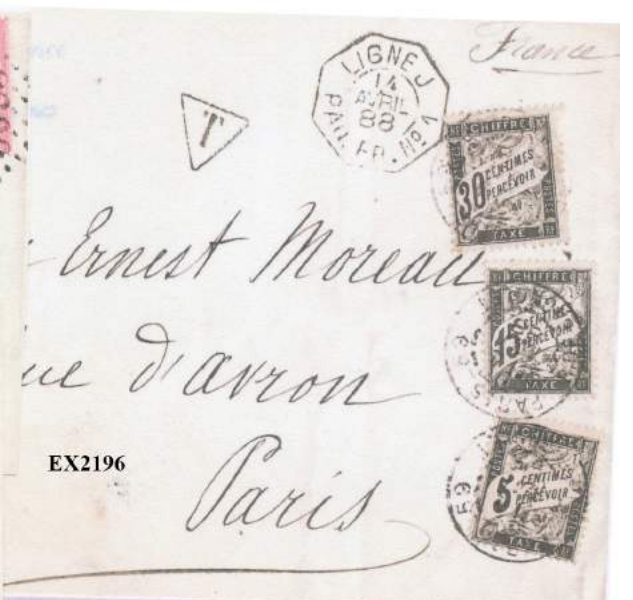 France
LIGNE J
14
AVRIL
88
PAQ. FR. Nº 1
T
CHIFFRE
30 CENTIMES
PERCEVOIR
TAXE
Ernest Moreau
CHIFFRE
15 CENTIMES
PERCEVOIR
TAXE
ue d'avron
EX2196
CHIFFRE
5 CENTIMES
PERCEVOIR
TAXE
PARIS
59
Paris